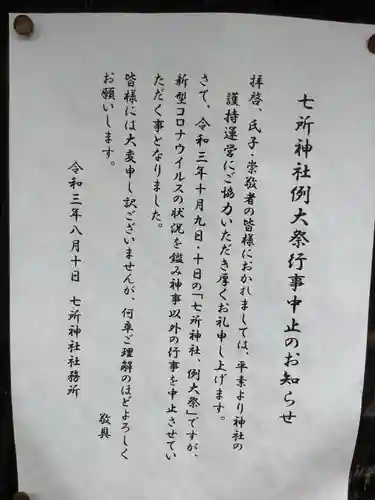 七所神社例大祭行事中止のお知らせ
拝啓、氏子・崇敬者の皆様におかれましては、平素より神社の
護持運営にご協力いただき厚くお礼申し上げます。
さて、令和三年十月九日・十日の「七所神社、例大祭」ですが、
新型コロナウイルスの状況を鑑み神事以外の行事を中止させてい
ただく事となりました。
皆様には大変申し訳ございませんが、何卒ご理解のほどよろしく
お願いします。
敬具
令和三年八月十日 七所神社社務所